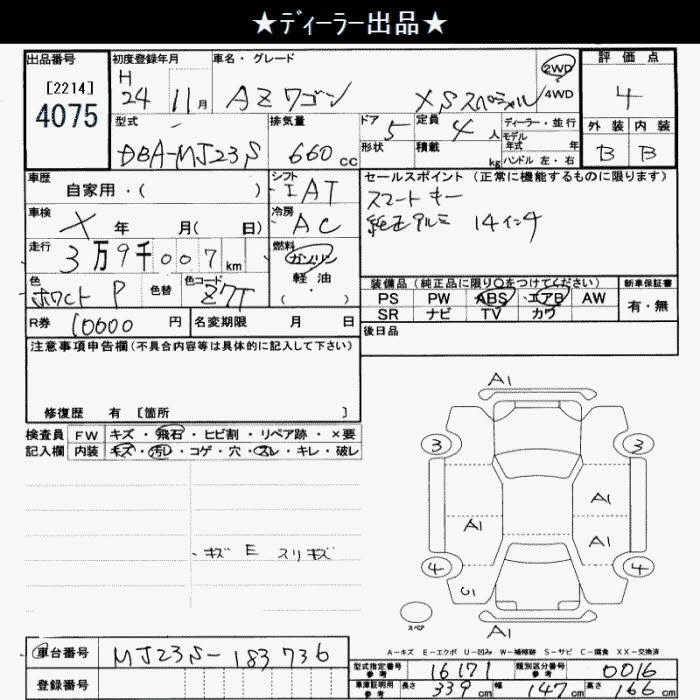 ★ディーラー出品★
出品番号 [2214] 4075
初度登録年月 H 24 11月
車名・グレード AZワゴン XSスペシャル
2WD 4WD
評価点 4
外装 内装 B B
型式 DBA-MJ23S
排気量 660 cc
ドア 5
形状
定員 4 人
積載 kg
ディーラー・並行
モデル年式 年
ハンドル 左・右
車歴 自家用・( )
シフト IAT
車検 × 年 月( 日)
冷房 AC
走行 3万9千007km
燃料 ガソリン 軽油 ( )
色 ホワイトP
色替
色コード Z7T
R券 10600 円
名変期限 月 日
セールスポイント(正常に機能するものに限ります)
スマートキー
純正アルミ 14インチ
装備品(純正品に限り○をつけてください)
PS PW ABS エアB AW
SR ナビ TV カワ
新車保証書 有・無
後日品
注意事項申告欄(不具合内容等は具体的に記入して下さい)
修復歴 有 [箇所 ]
検査員記入欄
FW キズ・飛石・ヒビ割・リペア跡・×要
内装 キズ・汚レ・コゲ・穴・スレ・キレ・破レ
・キズ E スリキズ
A1
3 3
A1
A1 A1
4 4
C1
A1
スペア
A-キズ E-エクボ U-凹み W-補修跡 S-サビ C-腐食 XX-交換済
車台番号 MJ23S-183736
登録番号
型式指定番号参考 16171
類別区分番号参考 0016
車庫証明用参考 長さ 339cm 幅 147cm 高さ 166cm